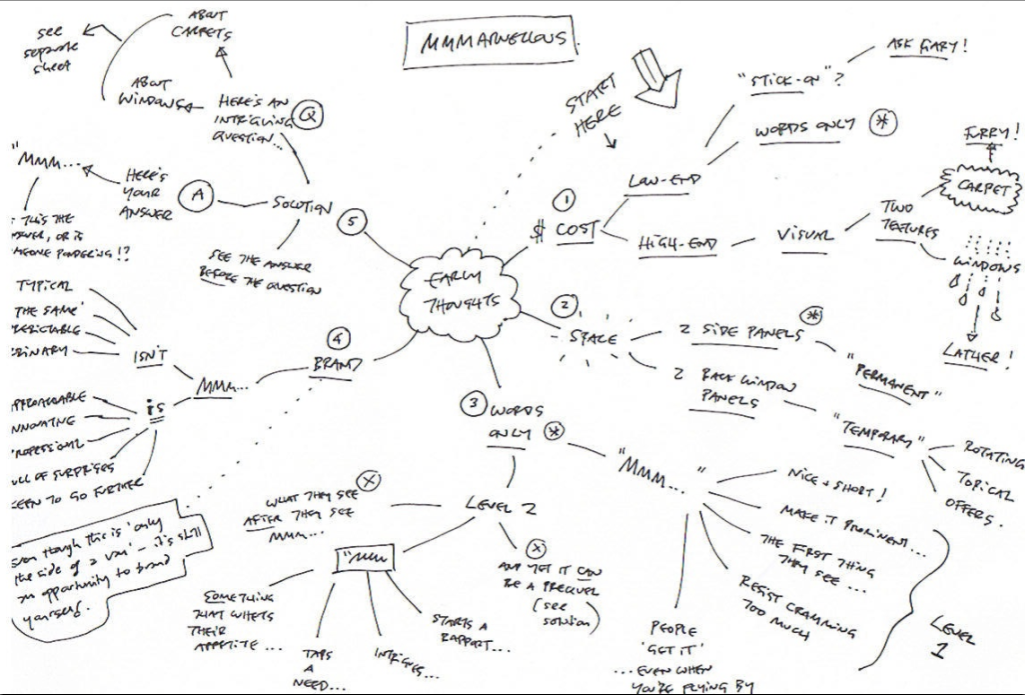 MMMARVELLOUS.
START
HERE
EARLY
THOUGHTS
1
$ COST
LOW-END
"STICK-ON"?
ASK GARY!
WORDS ONLY *
HIGH-END
VISUAL
TWO
TEXTURES
CARPET
FURRY!
WINDOWS
LATHER!
2
SPACE
2 SIDE PANELS *
"PERMANENT"
2 BACK WINDOW
PANELS
"TEMPORARY"
ROTATING
TOPICAL
OFFERS.
3 WORDS
ONLY *
"MMM... "
NICE + SHORT!
MAKE IT PROMINENT...
THE FIRST THING
THEY SEE...
RESIST CRAMMING
TOO MUCH
LEVEL
1
PEOPLE
'GET IT'
... EVEN WHEN
YOU'RE FLYING BY
LEVEL 2
X
WHAT THEY SEE
AFTER THEY SEE
MMM...
X
AND YET IT CAN
BE A PREQUEL
(see
solution)
"MMM
SOMETHING
THAT WHETS
THEIR
APPETITE...
TAPS
A
NEED...
INTRIGUES...
STARTS A
RAPPORT...
4
BRAND
MMM...
ISN'T
TYPICAL
THE SAME'
ORDINARY
is
APPROACHABLE
INNOVATIVE
PROFESSIONAL
FULL OF SURPRISES
KEEN TO GO FURTHER
Even though this is 'only
the side of a van' - it's still
an opportunity to brand
yourself.
5
SOLUTION
Q
HERE'S AN
INTRIGUING
QUESTION...
ABOUT
CARPETS
ABOUT
WINDOWS
see
separate
sheet
A
HERE'S
YOUR
ANSWER
"MMM...
THIS THE
ANSWER, OR IS
SOMEONE PONDERING!?
SEE THE ANSWER
BEFORE THE QUESTION